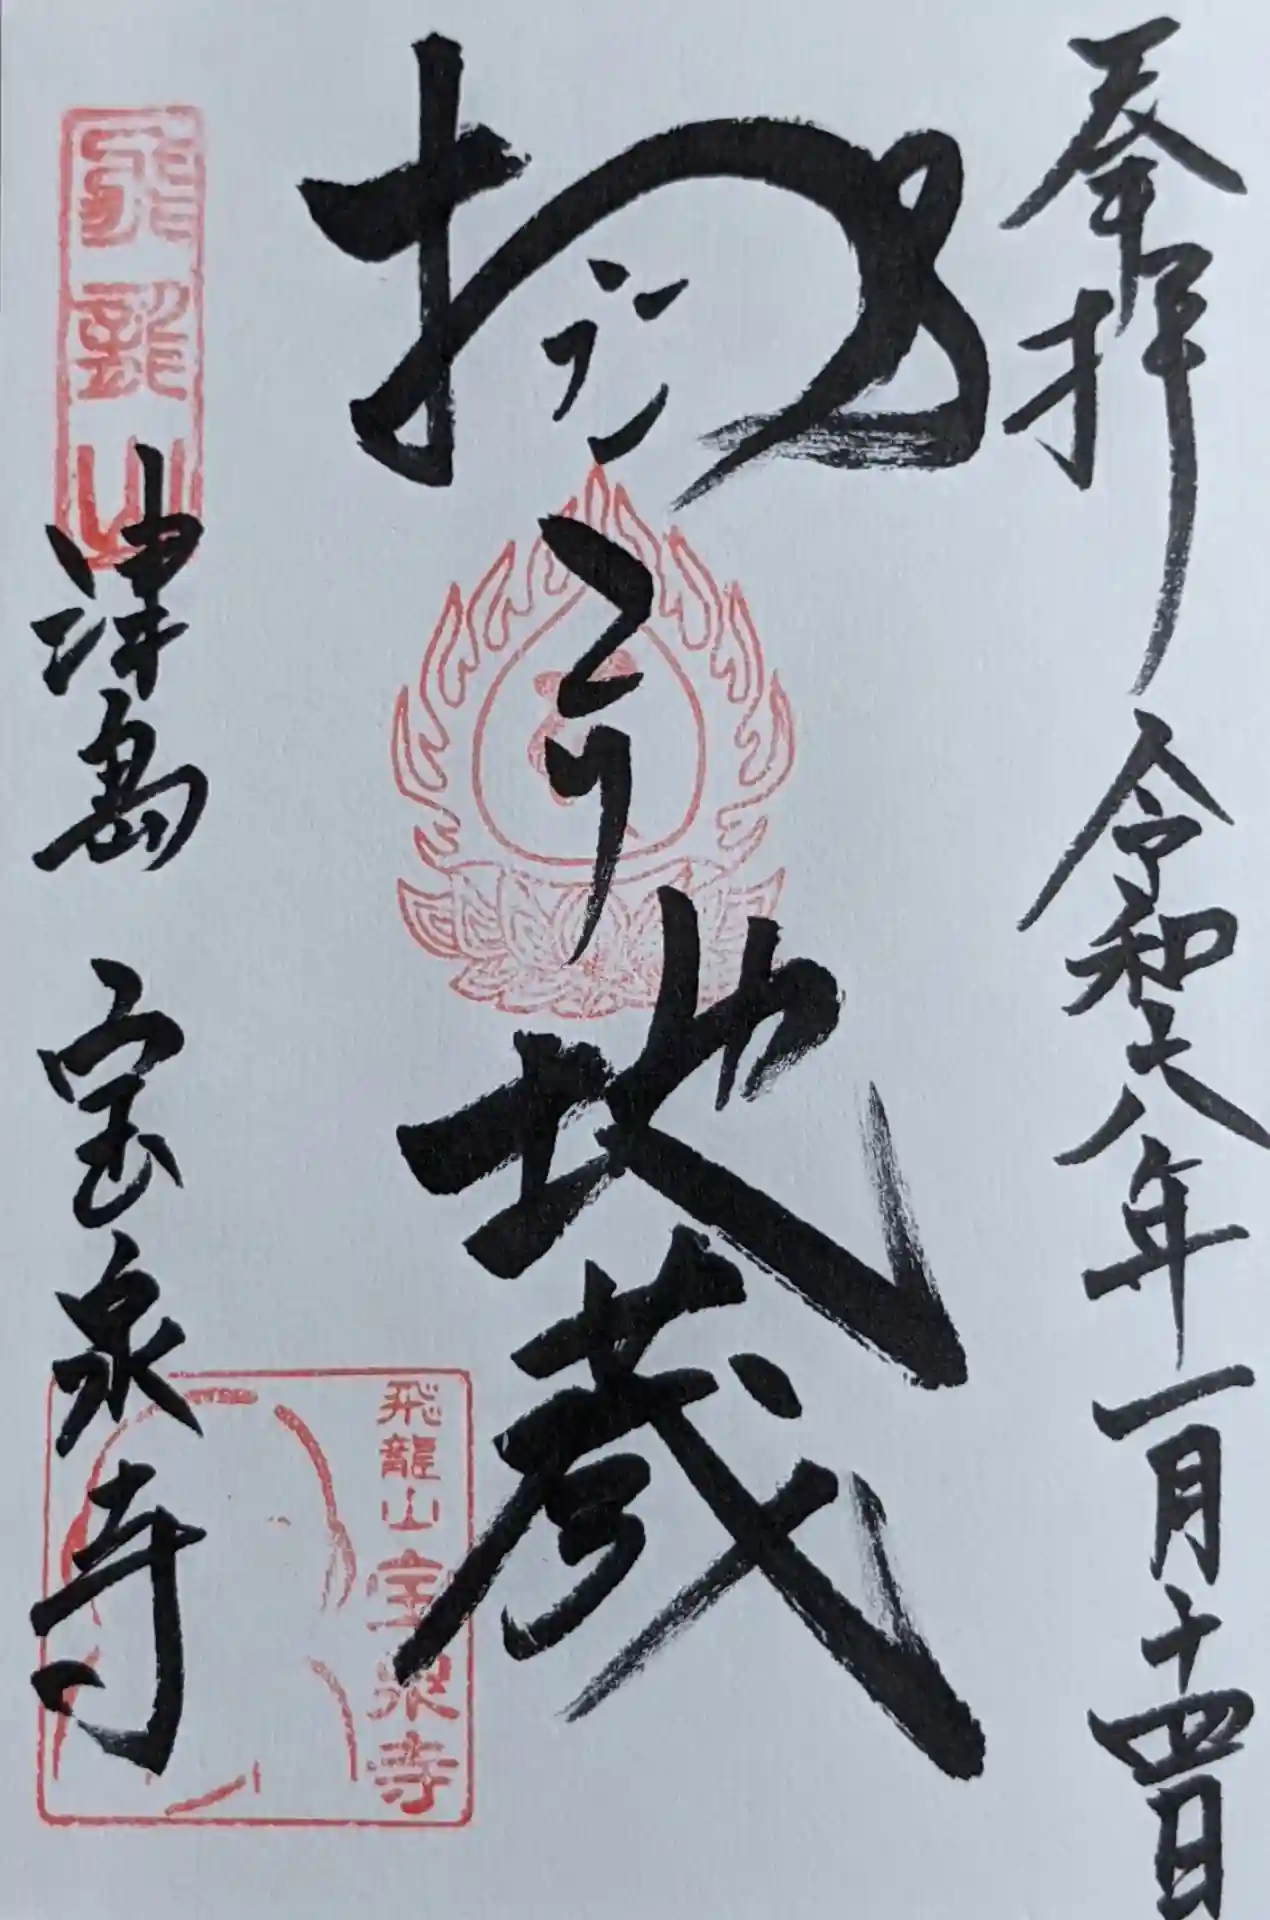 奉拝 令和六年一月十四日
おこり地蔵
飛龍山
津島 宝泉寺
飛龍山宝泉寺